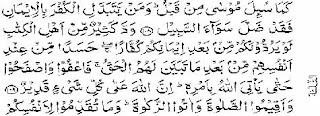 كَمَا سُئِلَ مُوْسٰى مِنْ قَبْلُ ؕ وَمَنْ يَّتَبَدَّلِ الْكُفْرَ بِالْاِيْمَانِ
فَقَدْ ضَلَّ سَوَآءَ السَّبِيْلِ ۝۱۰۸ وَدَّ كَثِيْرٌ مِّنْ اَهْلِ الْكِتٰبِ
لَوْ يَرُدُّوْنَكُمْ مِّنْۢ بَعْدِ اِيْمَانِكُمْ كُفَّارًا ۖۚ حَسَدًا مِّنْ عِنْدِ
اَنْفُسِهِمْ مِّنْۢ بَعْدِ مَا تَبَيَّنَ لَهُمُ الْحَقُّ ۚ فَاعْفُوْا وَاصْفَحُوْا
حَتّٰى يَاْتِيَ اللّٰهُ بِاَمْرِهٖ ؕ اِنَّ اللّٰهَ عَلٰى كُلِّ شَىْءٍ قَدِيْرٌ ۝۱۰۹
وَاَقِيْمُوا الصَّلٰوةَ وَاٰتُوا الزَّكٰوةَ ؕ وَمَا تُقَدِّمُوْا لِاَنْفُسِكُمْ